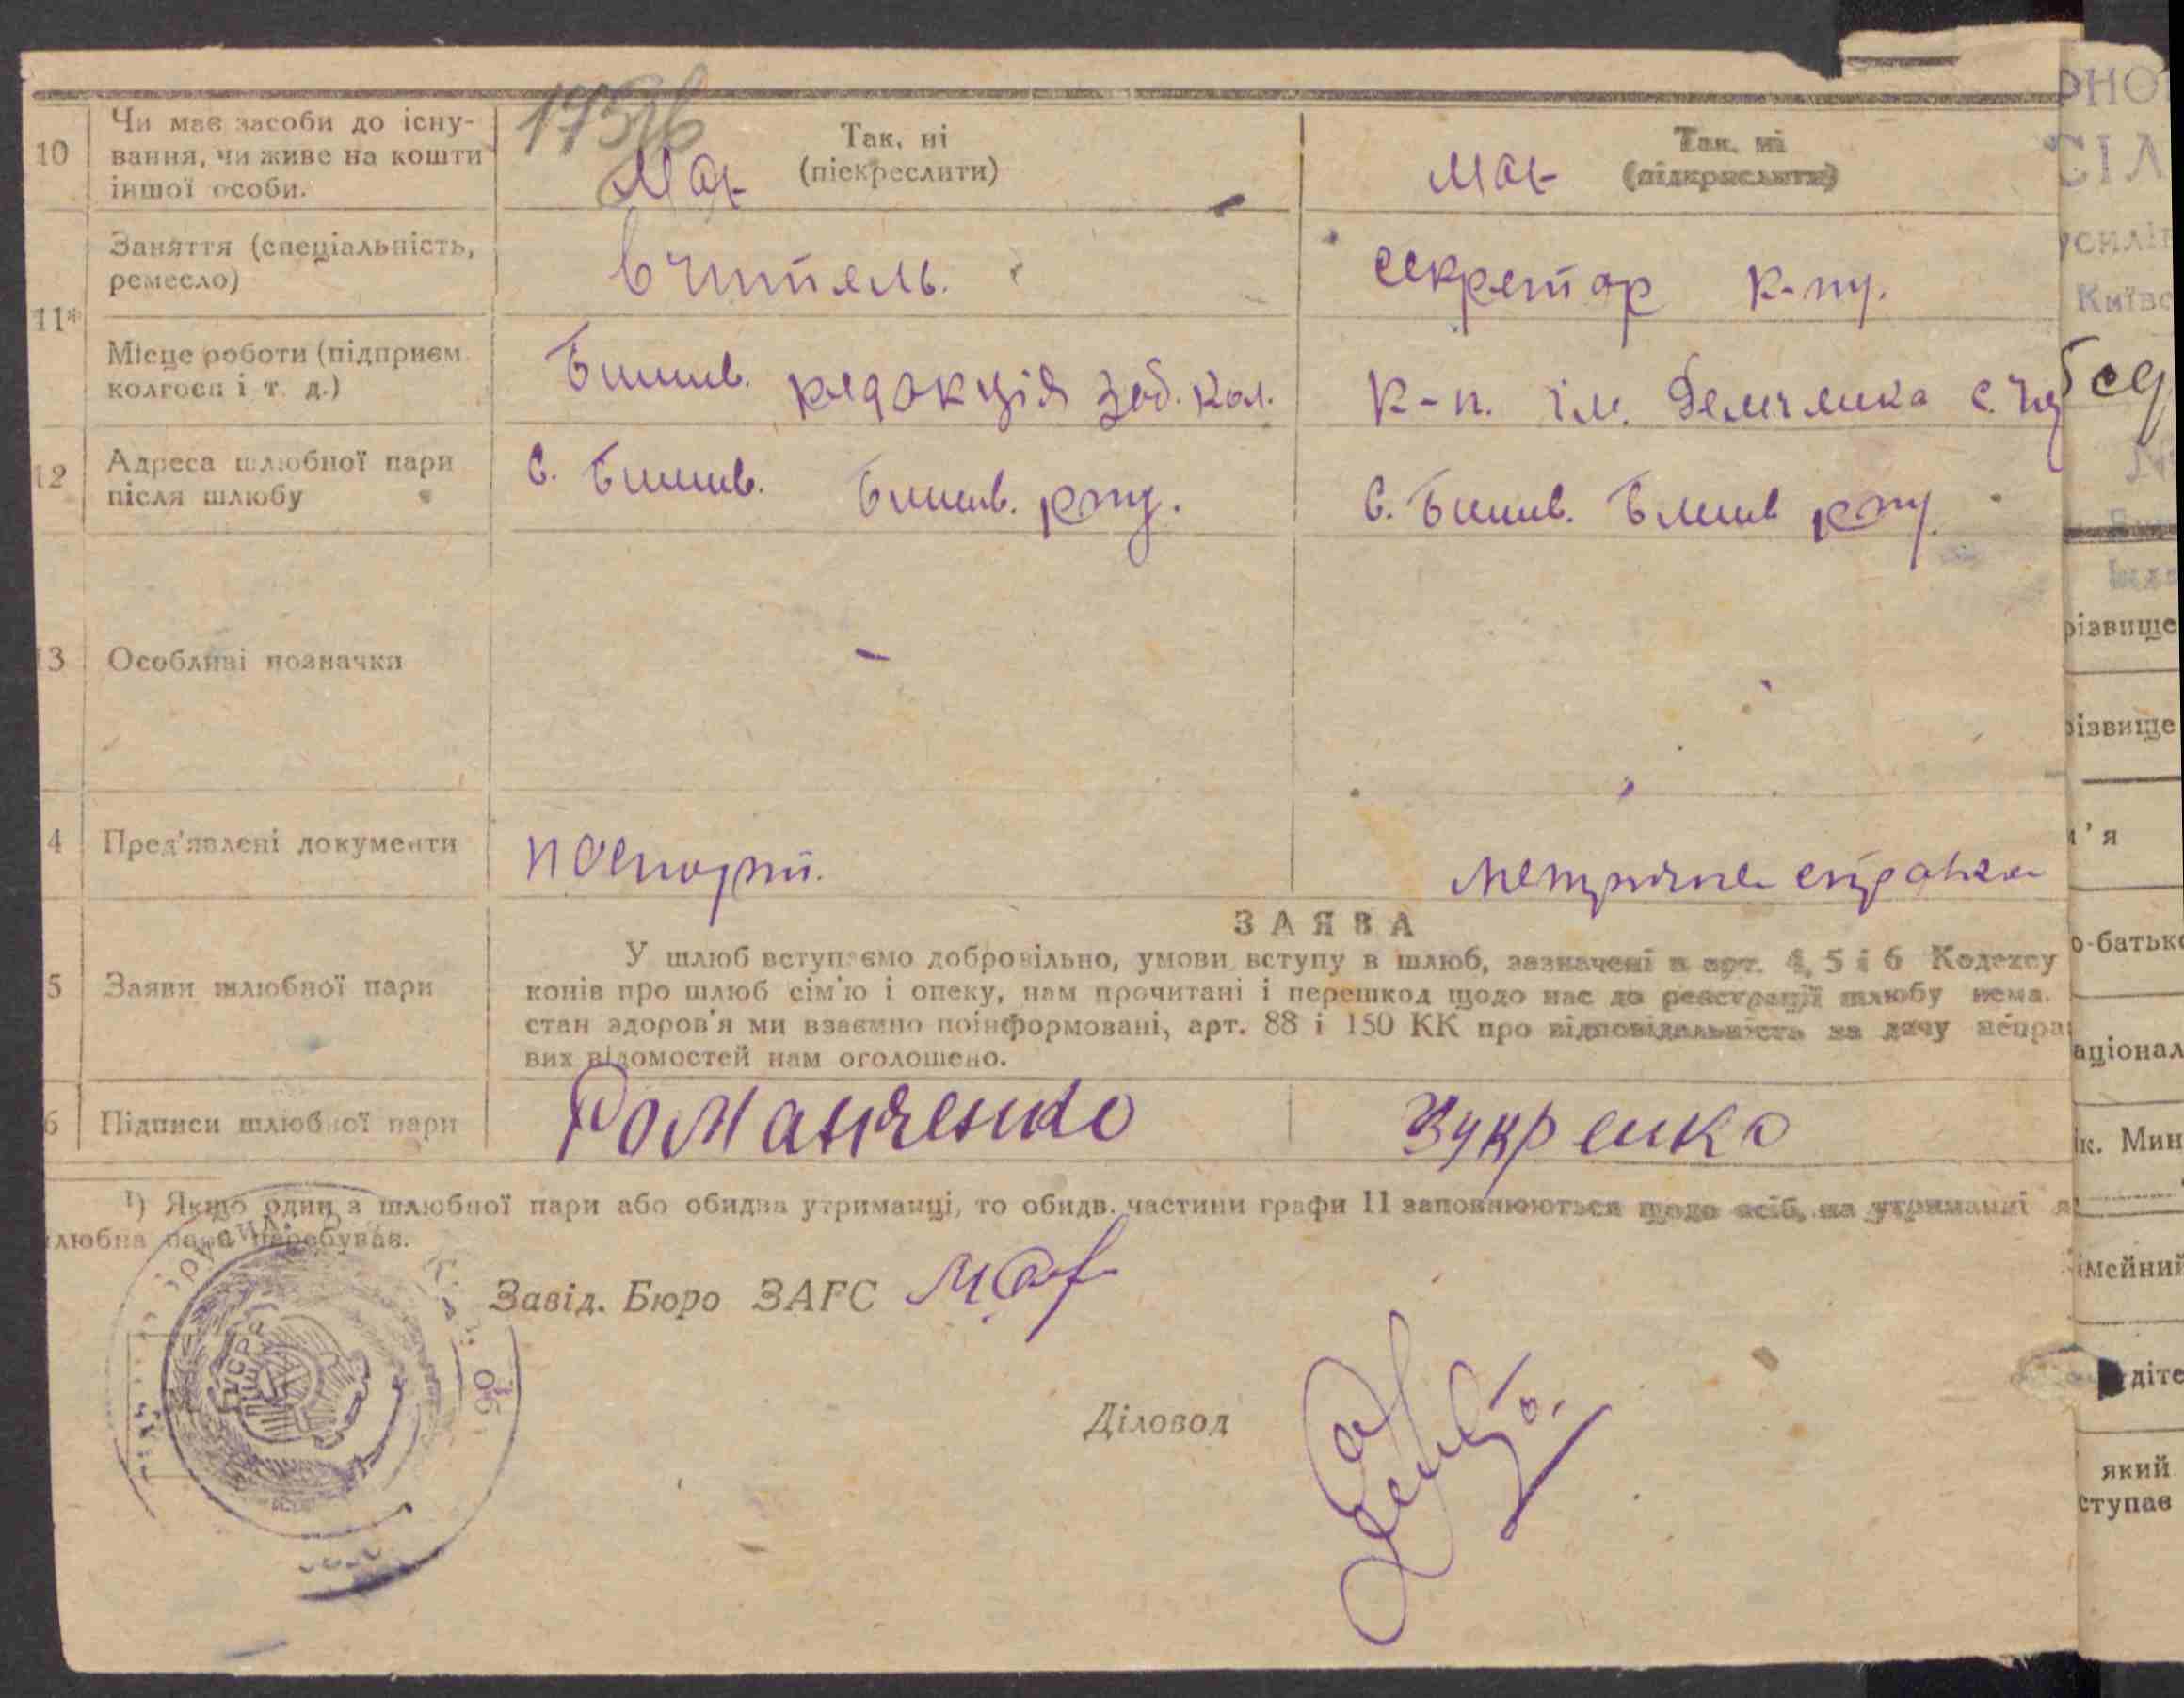 175зв
10
Чи має засоби до існу-
вання, чи живе на кошти
іншої особи.
Так, ні
(піскреслити)
має
Так, ні
(підкреслити)
має
11*
Заняття (спеціальність,
ремесло)
вчитель.
секретар к-пу.
Місце роботи (підприєм.
колгосп і т. д.)
Бишів. редакція
к-п. ім.
12
Адреса шлюбної пари
після шлюбу
с. Бишів. Бишів. р-ну.
с. Бишів. Бишів р-ну
3
Особливі позначки
-
4
Пред'явлені документи
паспорт.
метрична справка
ЗАЯВА
5
Заяви шлюбної пари
У шлюб вступаємо добровільно, умови вступу в шлюб, зазначені в арт. 4, 5 і 6 Кодексу
конів про шлюб сім'ю і опеку, нам прочитані і перешкод щодо нас до реєстрації шлюбу нема.
стан здоров'я ми взаємно поінформовані, арт. 88 і 150 КК про відповідальність за дачу непра
вих відомостей нам оголошено.
6
Підписи шлюбної пари
Романченко
Зукренко
¹) Якщо один з шлюбної пари або обидва утриманці, то обидв. частини графи 11 заповнюються щодо осіб, на утриманні я
любна пара перебуває.
Завід. Бюро ЗАГС
Діловод
УСРР
РНО
СІЛ
Київс
різвище
різвище
м'я
о-батько
аціонал
ік. Мин
імейний
діте
який
ступає